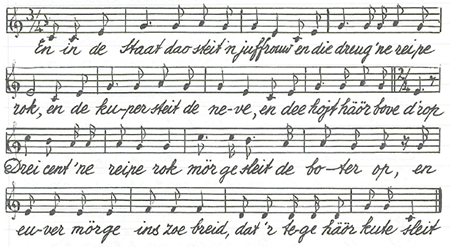 En in de Staat dao steit 'n juffrouw en die dreug 'ne reipe
rok, en de ku-per steit de ne-ve, en dee hojt häör bove d'rop
Drei cent 'ne reipe rok mörge sleit de bo-ter op, en
eu-ver mörge ins zoe breid, dat 'r te-ge häör kute sleit